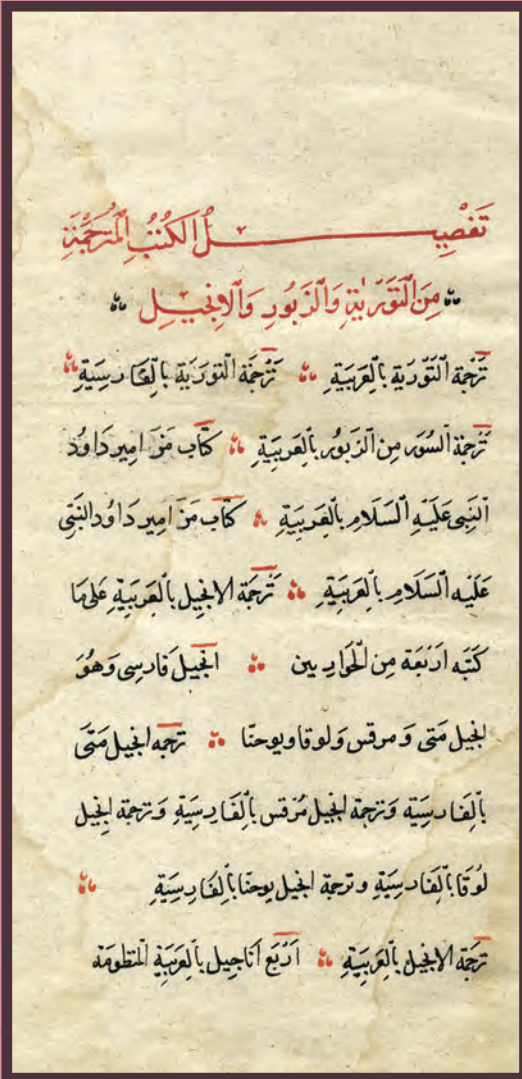 تَفْصِيلُ الْكُتُبِ الْمُتَرْجَمَةِ
مِنَ الْتَّوْرٰيةِ وَالْزَبُورِ وَالْاِنْجِيلِ
تَرْجَمَة الْتَّوْرَيةِ بِالْعَرَبِيَّةِ تَرْجَمَة الْتَّوْرَيَة بِالْفَارسِيَّةِ
تَرْجمَة الْسُوَرِ مِن الْزَبُورِ بِالْعَرَبِيَّةِ كتَاب مَزَامِير دَاوُد
الْنَبِى عَلَيْهِ الْسَلَام بِالْعَرَبِيَّةِ كتَاب مَزَامِير دَاوُد النَبِّى
عَلَيْه الْسَلَامِ بِالْعَرَبِيَّةِ تَرْجَمَة الانْجِيل بِالْعَرَبِيَّةِ عَلى مَا
كَتَبَه اَرْبَعَة مِن الْحَوَارِيين انْجِيل فَارسِى وَهُوَ
انجيل مَتى وَمرقس وَلوقا ويوحنّا ترجمَه انجيل مَتَى
بِالْفَارسِيَّه وَترجمَة انجيل مُرْقس بِالْفَارِسِيَّةِ وَترجمَة انجيل
لُوقَا بِالْفَارسِيَّةِ وترجمة انجيل يوحنّا بِالْفَارِسِيَّةِ
تَرجَمَة الانْجيل بِالْعَرَبِيَّةِ اَرْبَع اَنَاجِيل بِالْعَرَبِيَّةِ الْمَنظومَة